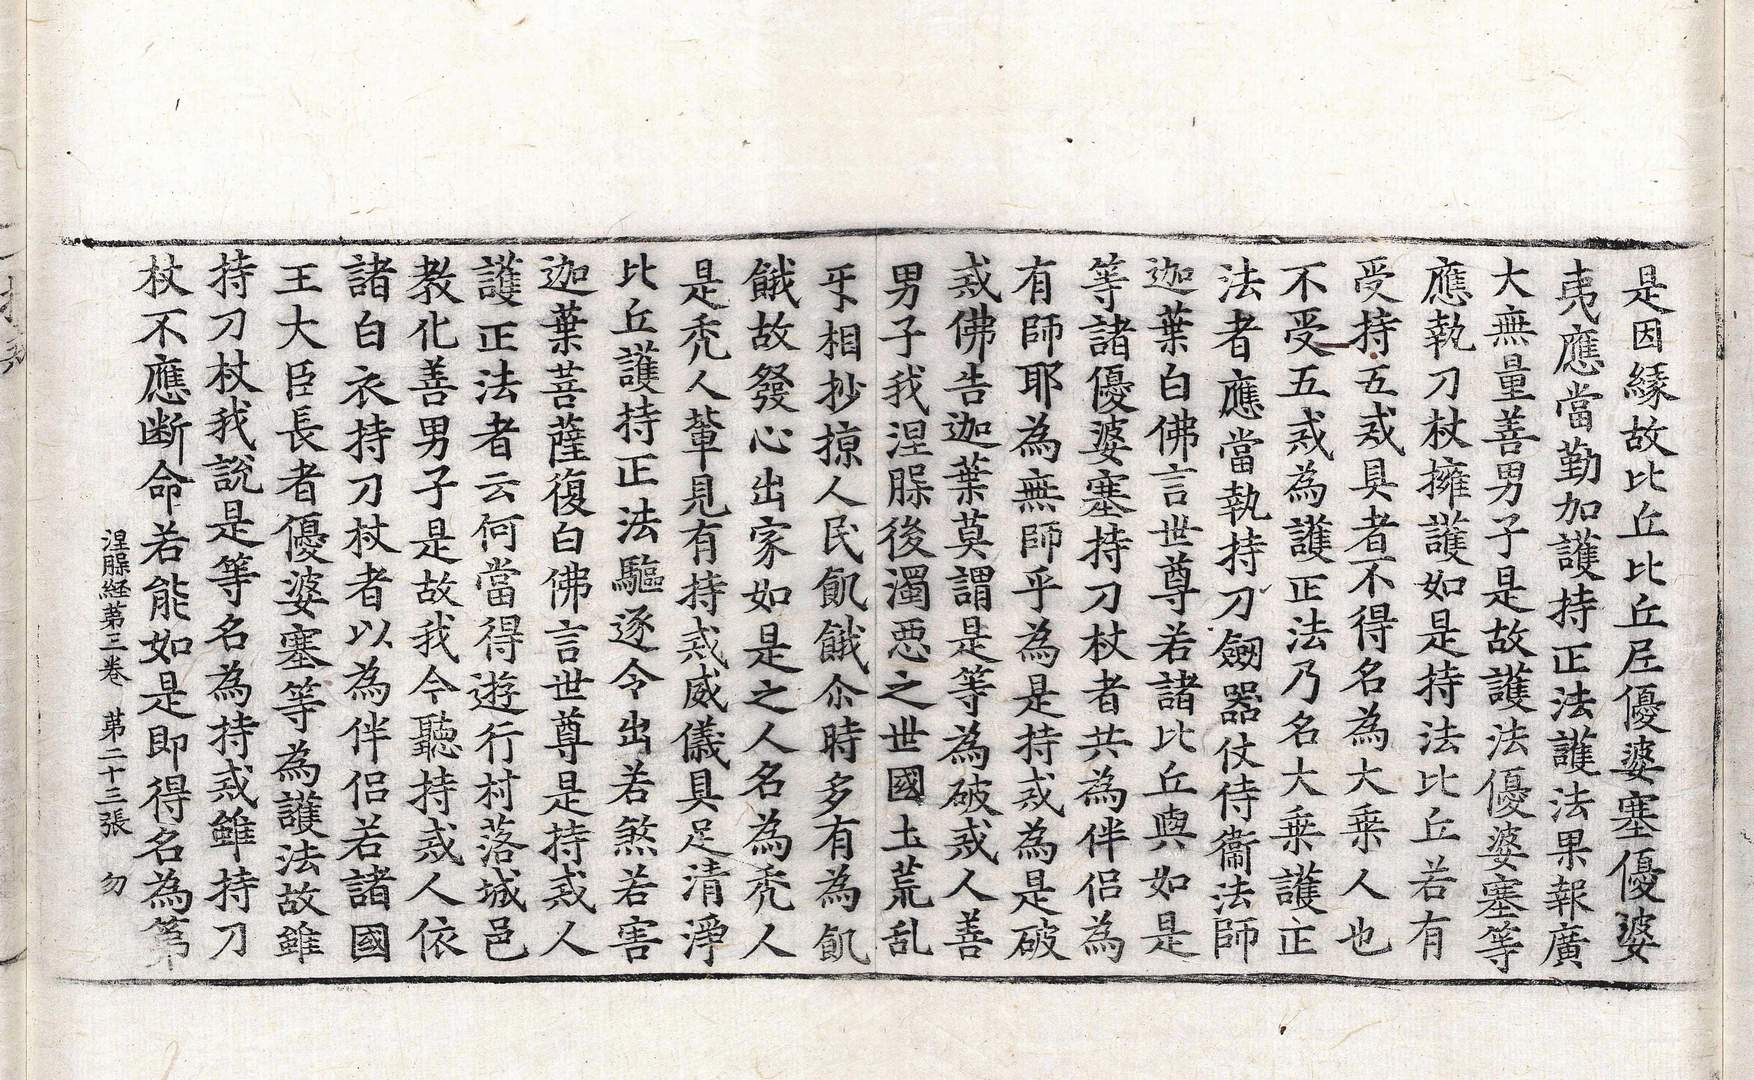 是因緣故比丘比丘尼優婆塞優婆
夷應當勤加護持正法護法果報廣
大無量善男子是故護法優婆塞等
應執刀杖擁護如是持法比丘若有
受持五戒具者不得名為大乗人也
不受五戒為護正法乃名大乗護正
法者應當執持刀劒器仗侍衞法師
迦葉白佛言世尊若諸比丘與如是
等諸優婆塞持刀杖者共為伴侶為
有師耶為無師乎為是持戒為是破
戒佛告迦葉莫謂是等為破戒人善
男子我涅槃後濁惡之世國土荒乱
互相抄掠人民飢餓尒時多有為飢
餓故發心出家如是之人名為禿人
是禿人輩見有持戒威儀具足清淨
比丘護持正法驅逐令出若煞若害
迦葉菩薩復白佛言世尊是持戒人
護正法者云何當得遊行村落城邑
教化善男子是故我今聽持戒人依
諸白衣持刀杖者以為伴侶若諸國
王大臣長者優婆塞等為護法故雖
持刀杖我說是等名為持戒雖持刀
杖不應断命若能如是即得名為第
涅槃経第三巻 第二十三張 勿